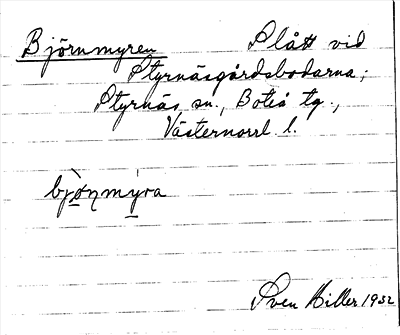 Björnmyren Slått vid
Styrnäsgårdsbodarna;
Styrnäs sn., Boteå tg.,
Västernorrl. l.
bjònmýra
Sven Hiller 1932